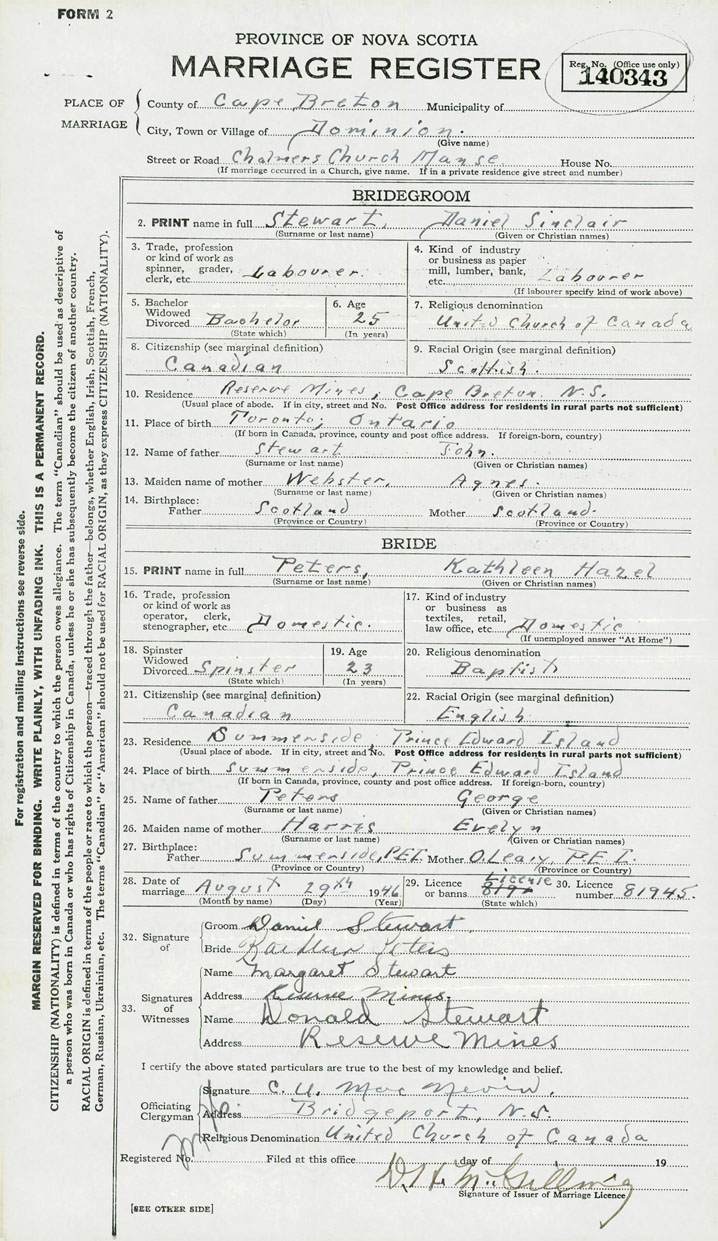 FORM 2
PROVINCE OF NOVA SCOTIA
MARRIAGE REGISTER
Reg. No. (Office use only)
140343
PLACE OF MARRIAGE
County of Cape Breton Municipality of
City, Town or Village of Dominion.
(Give name)
Street or Road Chalmers Church Manse House No.
(If marriage occurred in a Church, give name. If in a private residence give street and number)
BRIDEGROOM
2. PRINT name in full Stewart, Daniel Sinclair
(Surname or last name) (Given or Christian names)
3. Trade, profession or kind of work as spinner, grader, clerk, etc. Labourer.
4. Kind of industry or business as paper mill, lumber, bank, etc. Labourer
(If labourer specify kind of work above)
5. Bachelor Widowed Divorced Bachelor
(State which)
6. Age 25
(In years)
7. Religious denomination
United Church of Canada
8. Citizenship (see marginal definition)
Canadian
9. Racial Origin (see marginal definition)
Scottish.
10. Residence Reserve Mines, Cape Breton N.S.
(Usual place of abode. If in city, street and No. Post Office address for residents in rural parts not sufficient)
11. Place of birth Toronto, Ontario
(If born in Canada, province, county and post office address. If foreign-born, country)
12. Name of father Stewart John.
(Surname or last name) (Given or Christian names)
13. Maiden name of mother Webster, Agnes.
(Surname or last name) (Given or Christian names)
14. Birthplace:
Father Scotland Mother Scotland.
(Province or Country) (Province or Country)
BRIDE
15. PRINT name in full Peters, Kathleen Hazel
(Surname or last name) (Given or Christian names)
16. Trade, profession or kind of work as operator, clerk, stenographer, etc. Domestic.
17. Kind of industry or business as textiles, retail, law office, etc. Domestic
(If unemployed answer "At Home")
18. Spinster Widowed Divorced Spinster
(State which)
19. Age 23
(In years)
20. Religious denomination
Baptist
21. Citizenship (see marginal definition)
Canadian
22. Racial Origin (see marginal definition)
English
23. Residence Summerside, Prince Edward Island
(Usual place of abode. If in city, street and No. Post Office address for residents in rural parts not sufficient)
24. Place of birth Summerside, Prince Edward Island
(If born in Canada, province, county and post office address. If foreign-born, country)
25. Name of father Peters George
(Surname or last name) (Given or Christian names)
26. Maiden name of mother Harris Evelyn
(Surname or last name) (Given or Christian names)
27. Birthplace:
Father Summerside, PEI. Mother O.Leary, P.E.I.
(Province or Country) (Province or Country)
28. Date of marriage August 29th 1946
(Month by name) (Day) (Year)
29. Licence or banns License
(State which)
30. Licence number 81945.
32. Signature of
Groom Daniel Stewart
Bride Kathleen Peters
33. Signatures of Witnesses
Name Margaret Stewart
Address Reserve Mines.
Name Donald Stewart
Address Reserve Mines
I certify the above stated particulars are true to the best of my knowledge and belief.
Officiating Clergyman
Signature C. U. Mac Nevin.
Address Bridgeport, N.S.
Religious Denomination United Church of Canada
Registered No. Filed at this office day of 19
Signature of Issuer of Marriage Licence
[SEE OTHER SIDE]
For registration and mailing instructions see reverse side.
MARGIN RESERVED FOR BINDING. WRITE PLAINLY, WITH UNFADING INK. THIS IS A PERMANENT RECORD.
CITIZENSHIP (NATIONALITY) is defined in terms of the country to which the person owes allegiance. The term "Canadian" should be used as descriptive of
a person who was born in Canada or who has rights of Citizenship in Canada, unless he or she has subsequently become the citizen of another country.
RACIAL ORIGIN is defined in terms of the people or race to which the person—traced through the father—belongs, whether English, Irish, Scottish, French,
German, Russian, Ukrainian, etc. The terms "Canadian" or "American" should not be used for RACIAL ORIGIN, as they express CITIZENSHIP (NATIONALITY).